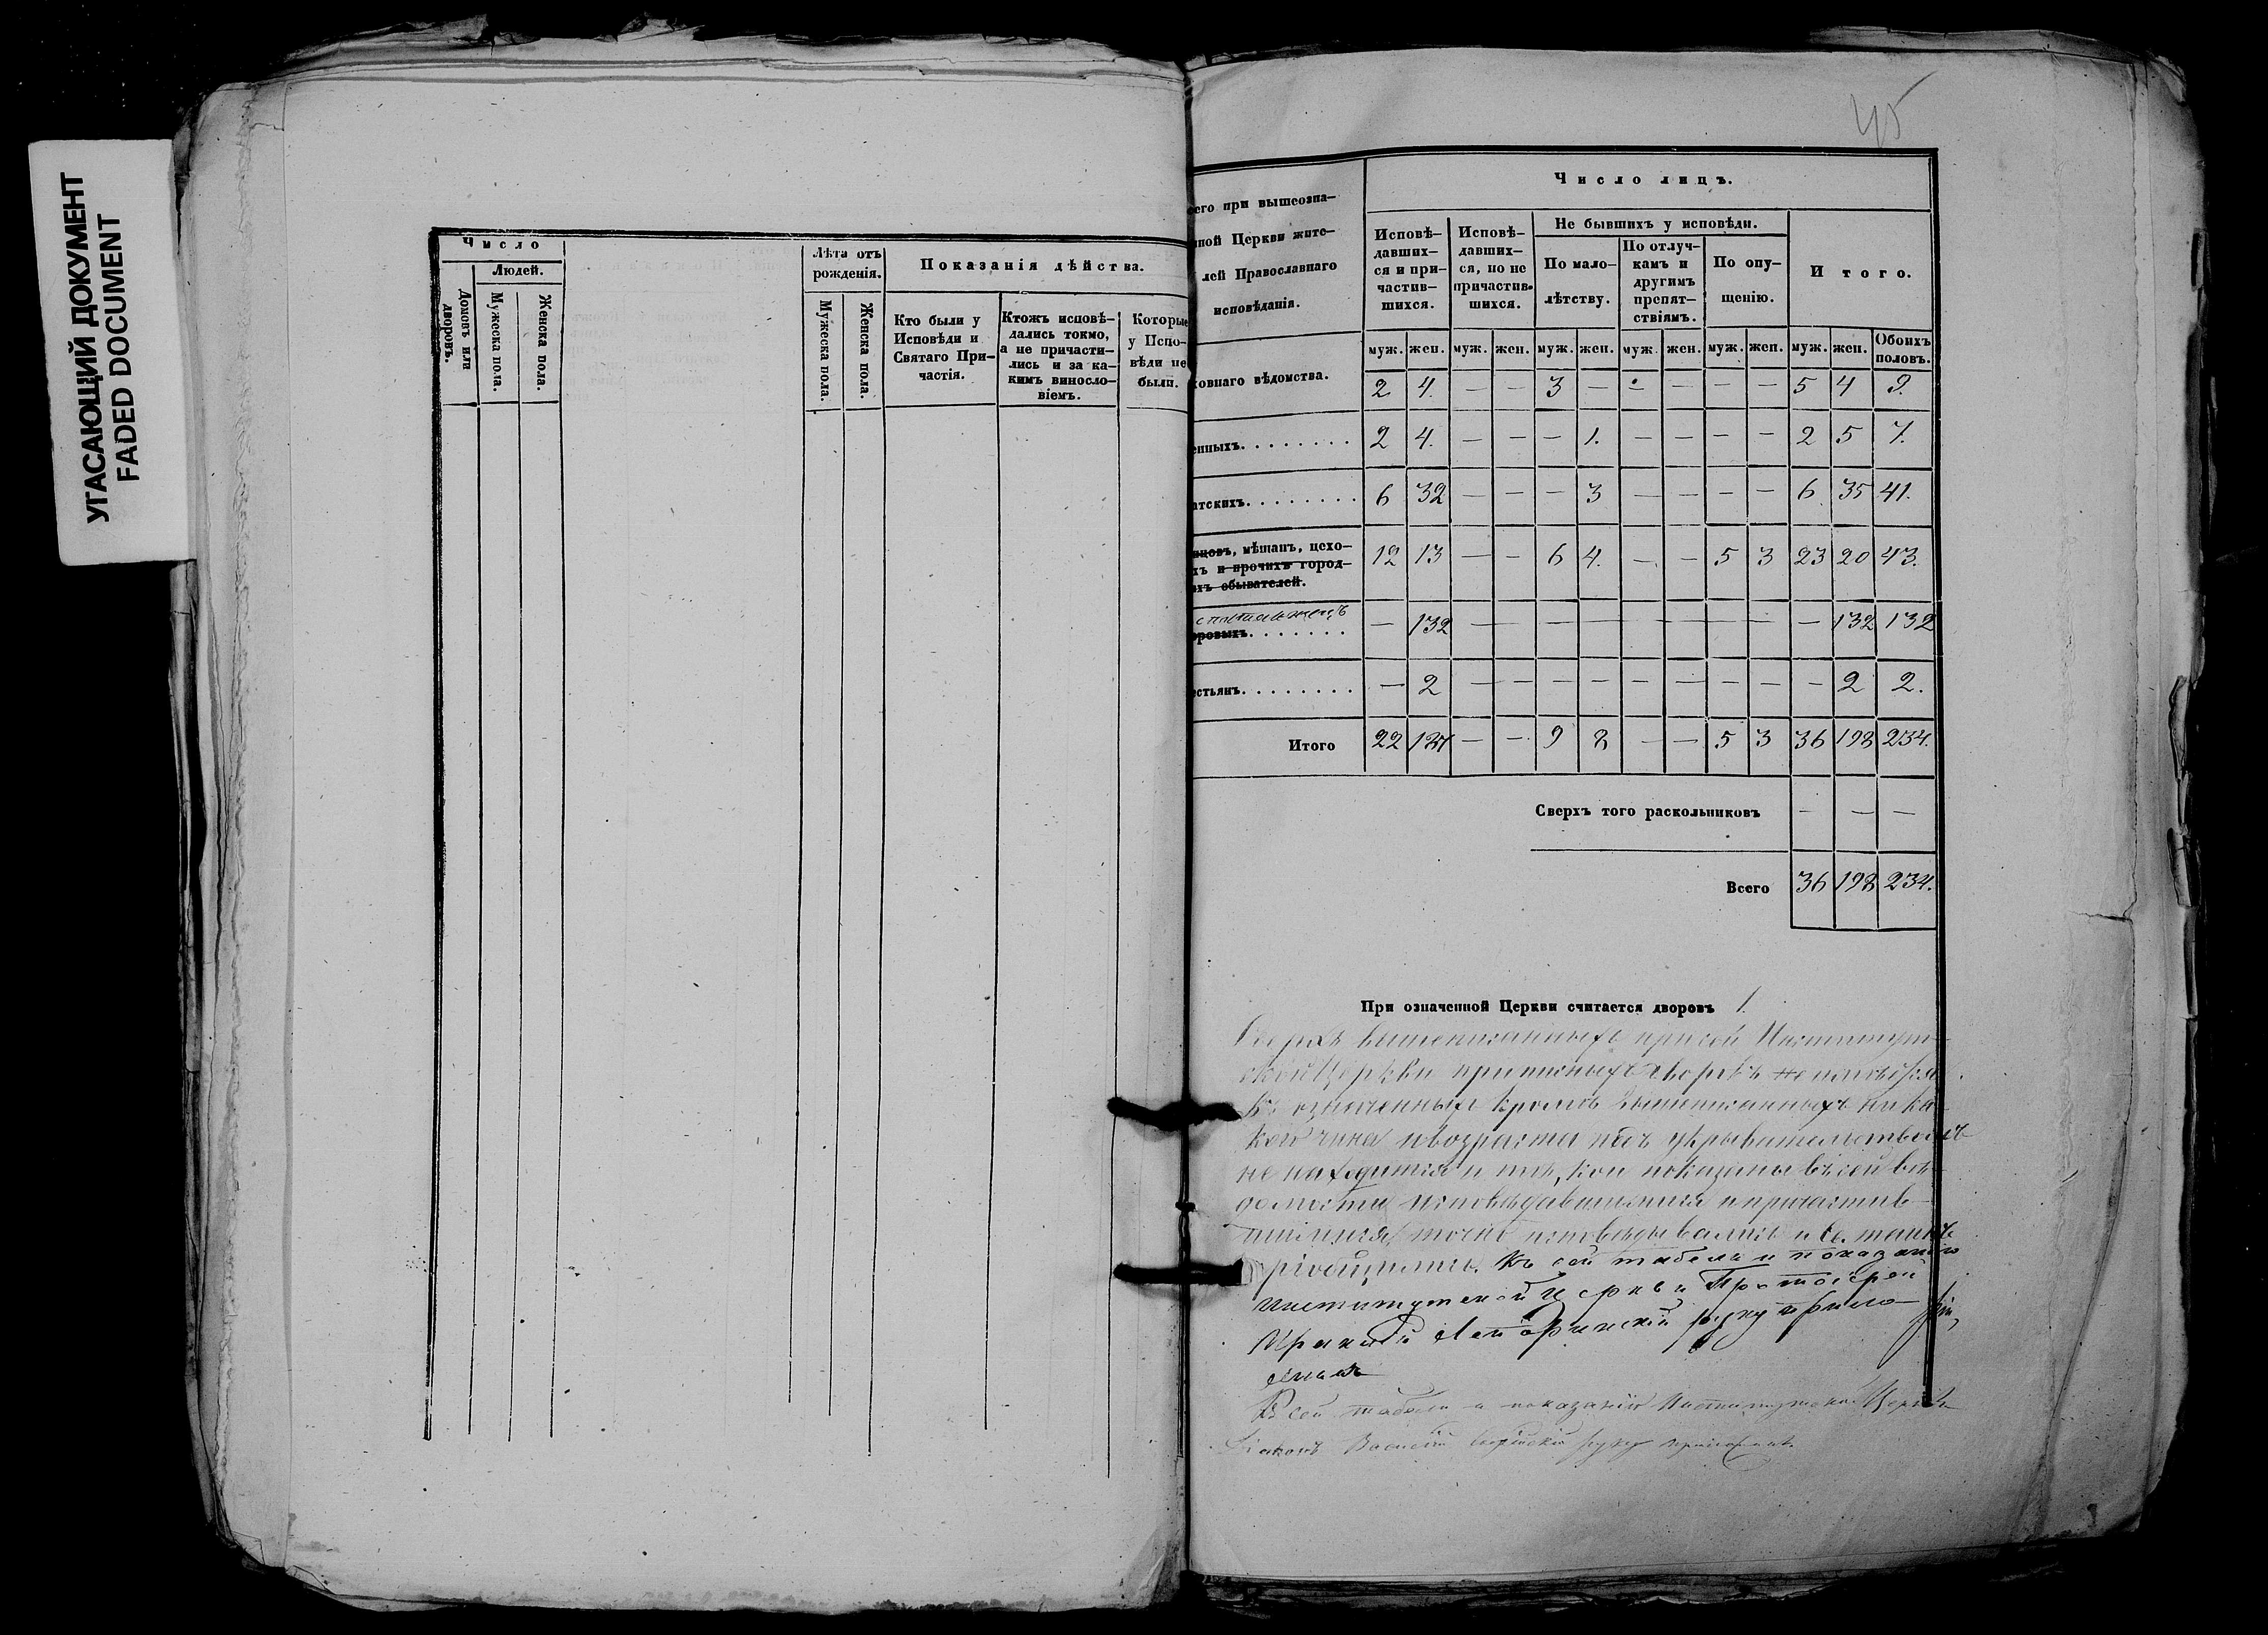 УГАСАЮЩИЙ ДОКУМЕНТ
FADED DOCUMENT
Число
Людей.
Домовъ или дворовъ.
Мужеска пола.
Женска пола.
Лѣта отъ рожденія.
Мужеска пола.
Женска пола.
Показанія дѣйства.
Кто были у
Исповѣди и
Святаго При-
частія.
Ктожъ исповѣ-
дались токмо,
а не причасти-
лись и за ка-
кимъ винносло-
віемъ.
Которые
у Испо-
вѣди не
были.
45
его при вышеозна-
ной Церкви жите-
лей Православнаго
исповѣданія.
Число лицъ.
Исповѣ-
давших-
ся и при-
частив-
шихся.
Исповѣ-
давших-
ся, но не
причастив-
шихся.
Не бывшихъ у исповѣди.
По мало-
лѣтству.
По отлуч-
камъ и
другимъ
препят-
ствіямъ.
По опу-
щенію.
Итого.
муж. жен. муж. жен. муж. жен. муж. жен. муж. жен. муж. жен. Обоихъ половъ.
ховнаго вѣдомства. 2 4. — — 3 — — — — — 5 4 9.
енныхъ. . . . . . . . 2 4. — — — 1. — — — — 2 5 7.
атскихъ. . . . . . . . 6 32 — — — 3 — — — — 6 35 41.
нцовъ, мѣщанъ, цехо-
хъ и прочихъ город-
ихъ обывателей. 12 13 — — 6 4. — — 5 3 23 20 43.
оровыхъ. . . . . . . — 132 — — — — — — — — — 132 132
естьянъ. . . . . . . . — 2 — — — — — — — — — 2 2.
Итого 22 187 — — 9 8 — — 5 3 36 198 234.
Сверхъ того раскольниковъ — — —
Всего 36 198 234.
При означенной Церкви считается дворовъ 1.
Сверхъ вышеписанныхъ при сей Институт-
ской Церкви приписныхъ дворовъ не имѣется
Въ означенныхъ кромѣ вышеписанныхъ ника-
кого чина и возраста подъ укрывательствомъ
не находится и тѣ, кои показаны въ сей вѣ-
домости исповѣдавшимися и причастив-
шимися, точно исповѣдывались и Св. таинъ
пріобщились. Къ сей табели и показанію
Институтской Церкви Протоіерей
руку прило-
жилъ
Къ сей табели и показанію Институтской Церкви
Діаконъ Василій руку приложилъ